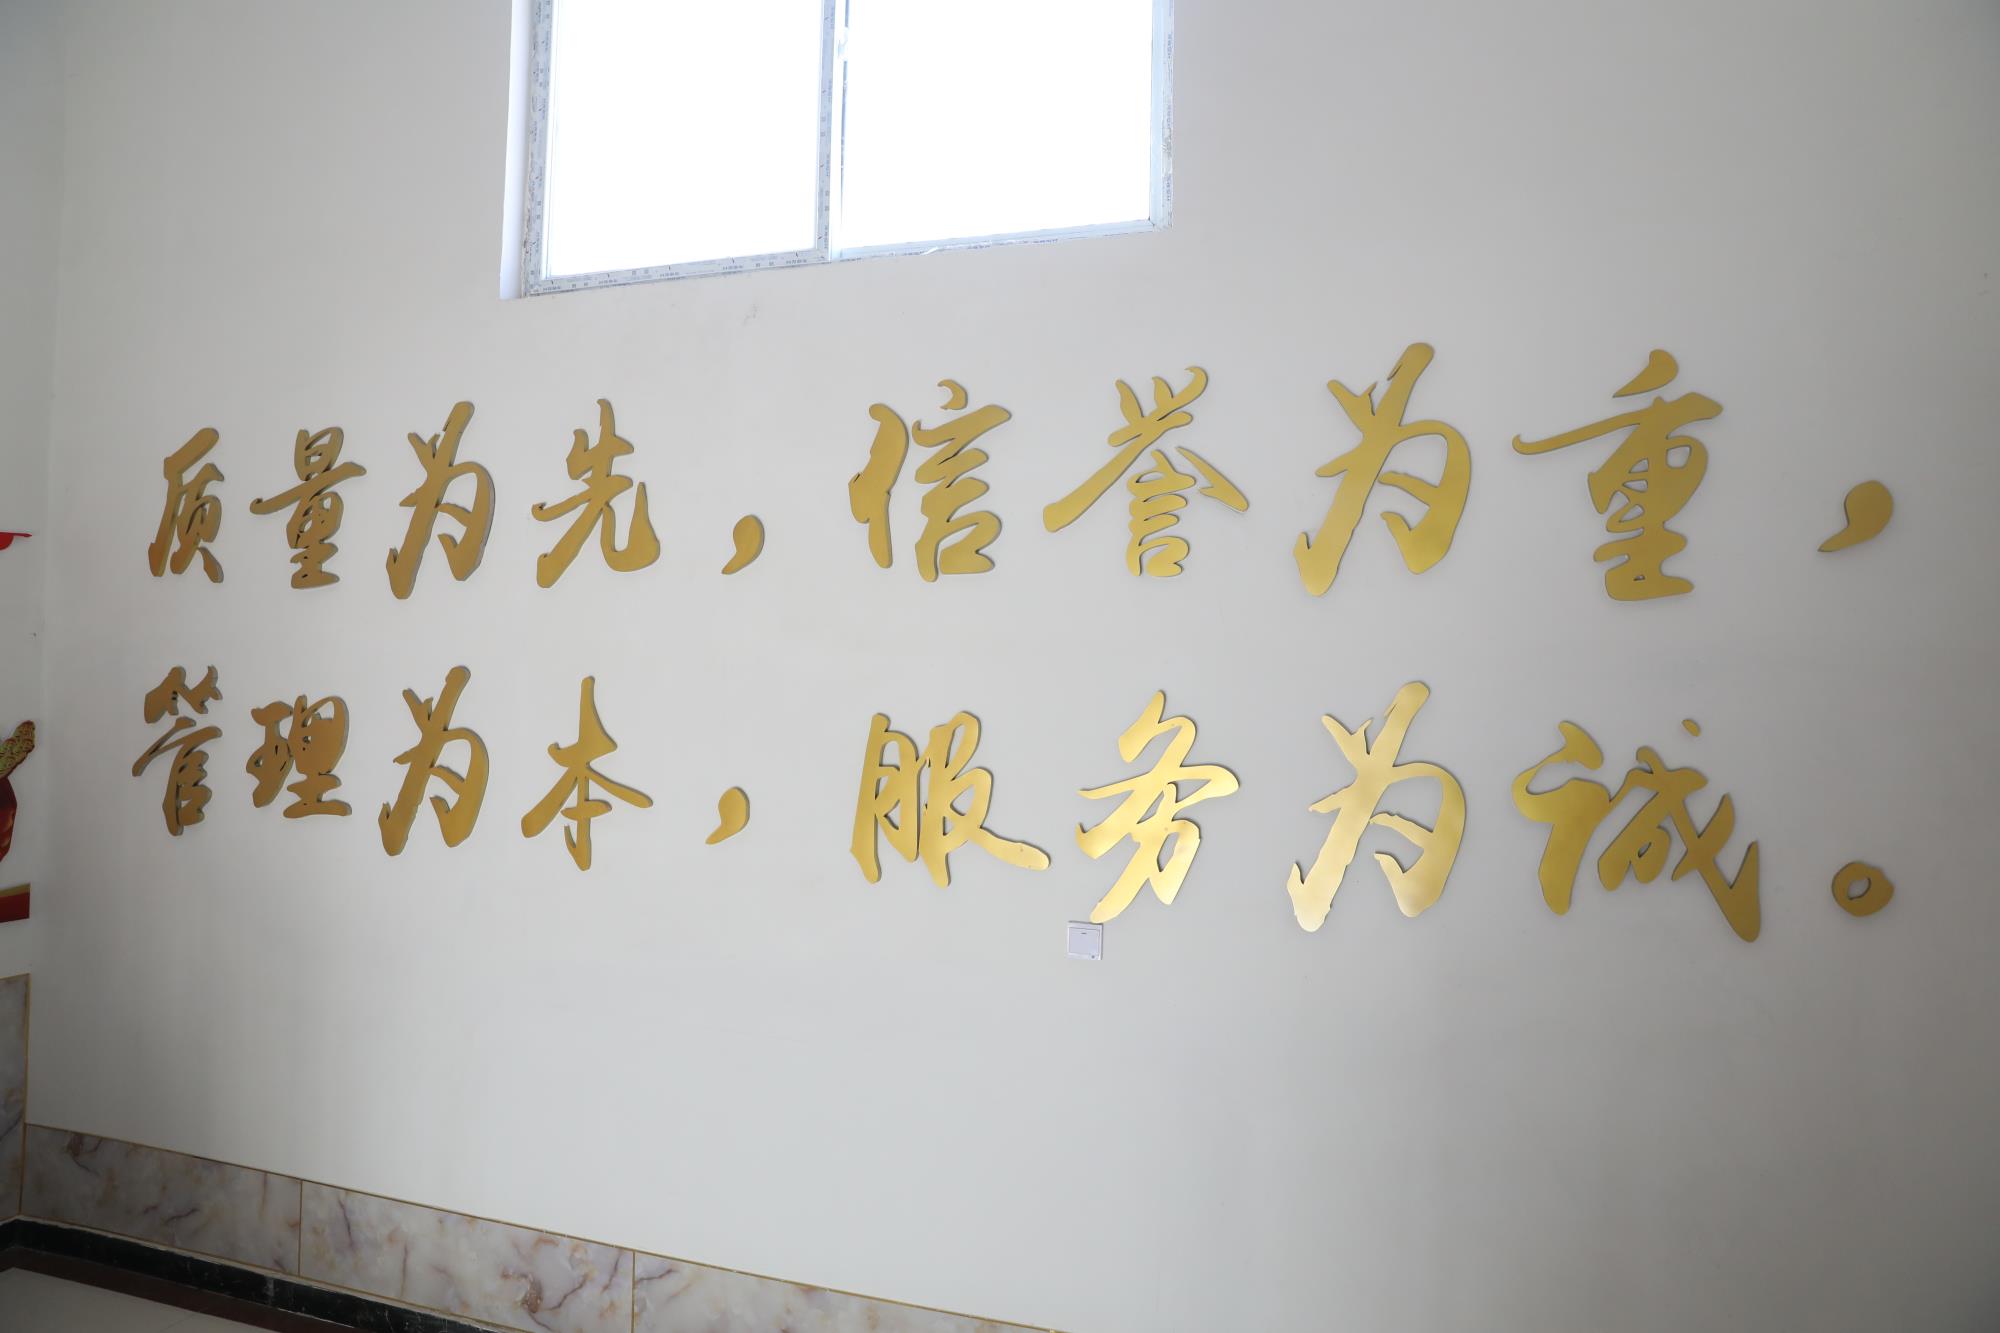 质量为先，信誉为重，
管理为本，服务为诚。